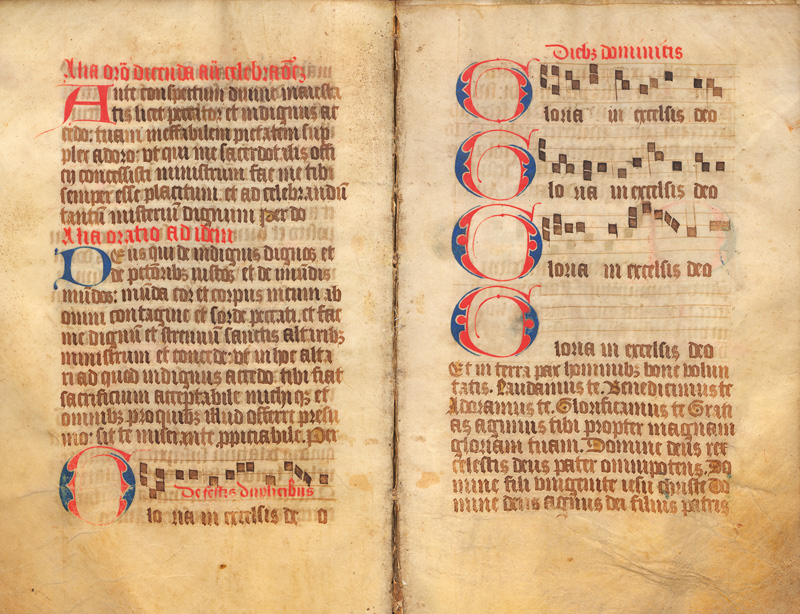 Alia oro dicenda an celebracoez
Ante conspectum diuine maiesta
tis licet peccator et indignus ac
cedo: tuam ineffabilem pietatem sup
plex adoro: vt qui me sacerdotalis offi
cij concessisti ministrum fac me tibi
semper esse placitum. et ad celebrandu
tantu misteriu dignum Per do
Alia oratio ad idem
Deus qui de indignis dignos et
de pctoribz iustos: et de inmudis
mudos: muda cor et corpus meum ab
omni contagine et sorde peccati. et fac
me dignum et strenuu sanctis altaribz
ministrum et concede: vt in hoc alta
ri ad quod indignus accedo. tibi fiat
sacrificium acceptabile michi qz et
omnibz pro quibz illud offerre presu
mo: sit te miserante ppiciabile. Per
De festis duplicibus
Glo ria in excelsis de o
Diebz dominicis
Gloria in excelsis deo
Glo ria in excelsis deo
Gloria in excelsis deo
Gloria in excelsis deo
Et in terra pax hominibz bone volun
tatis. Laudamus te. Benedicimus te
Adoramus te. Glorificamus te Grati
as agimus tibi propter magnam
gloriam tuam. Domine deus rex
celestis deus pater omnipotens. Do
mine fili vnigenite iesu christe Do
mine deus agnus dei filius patris